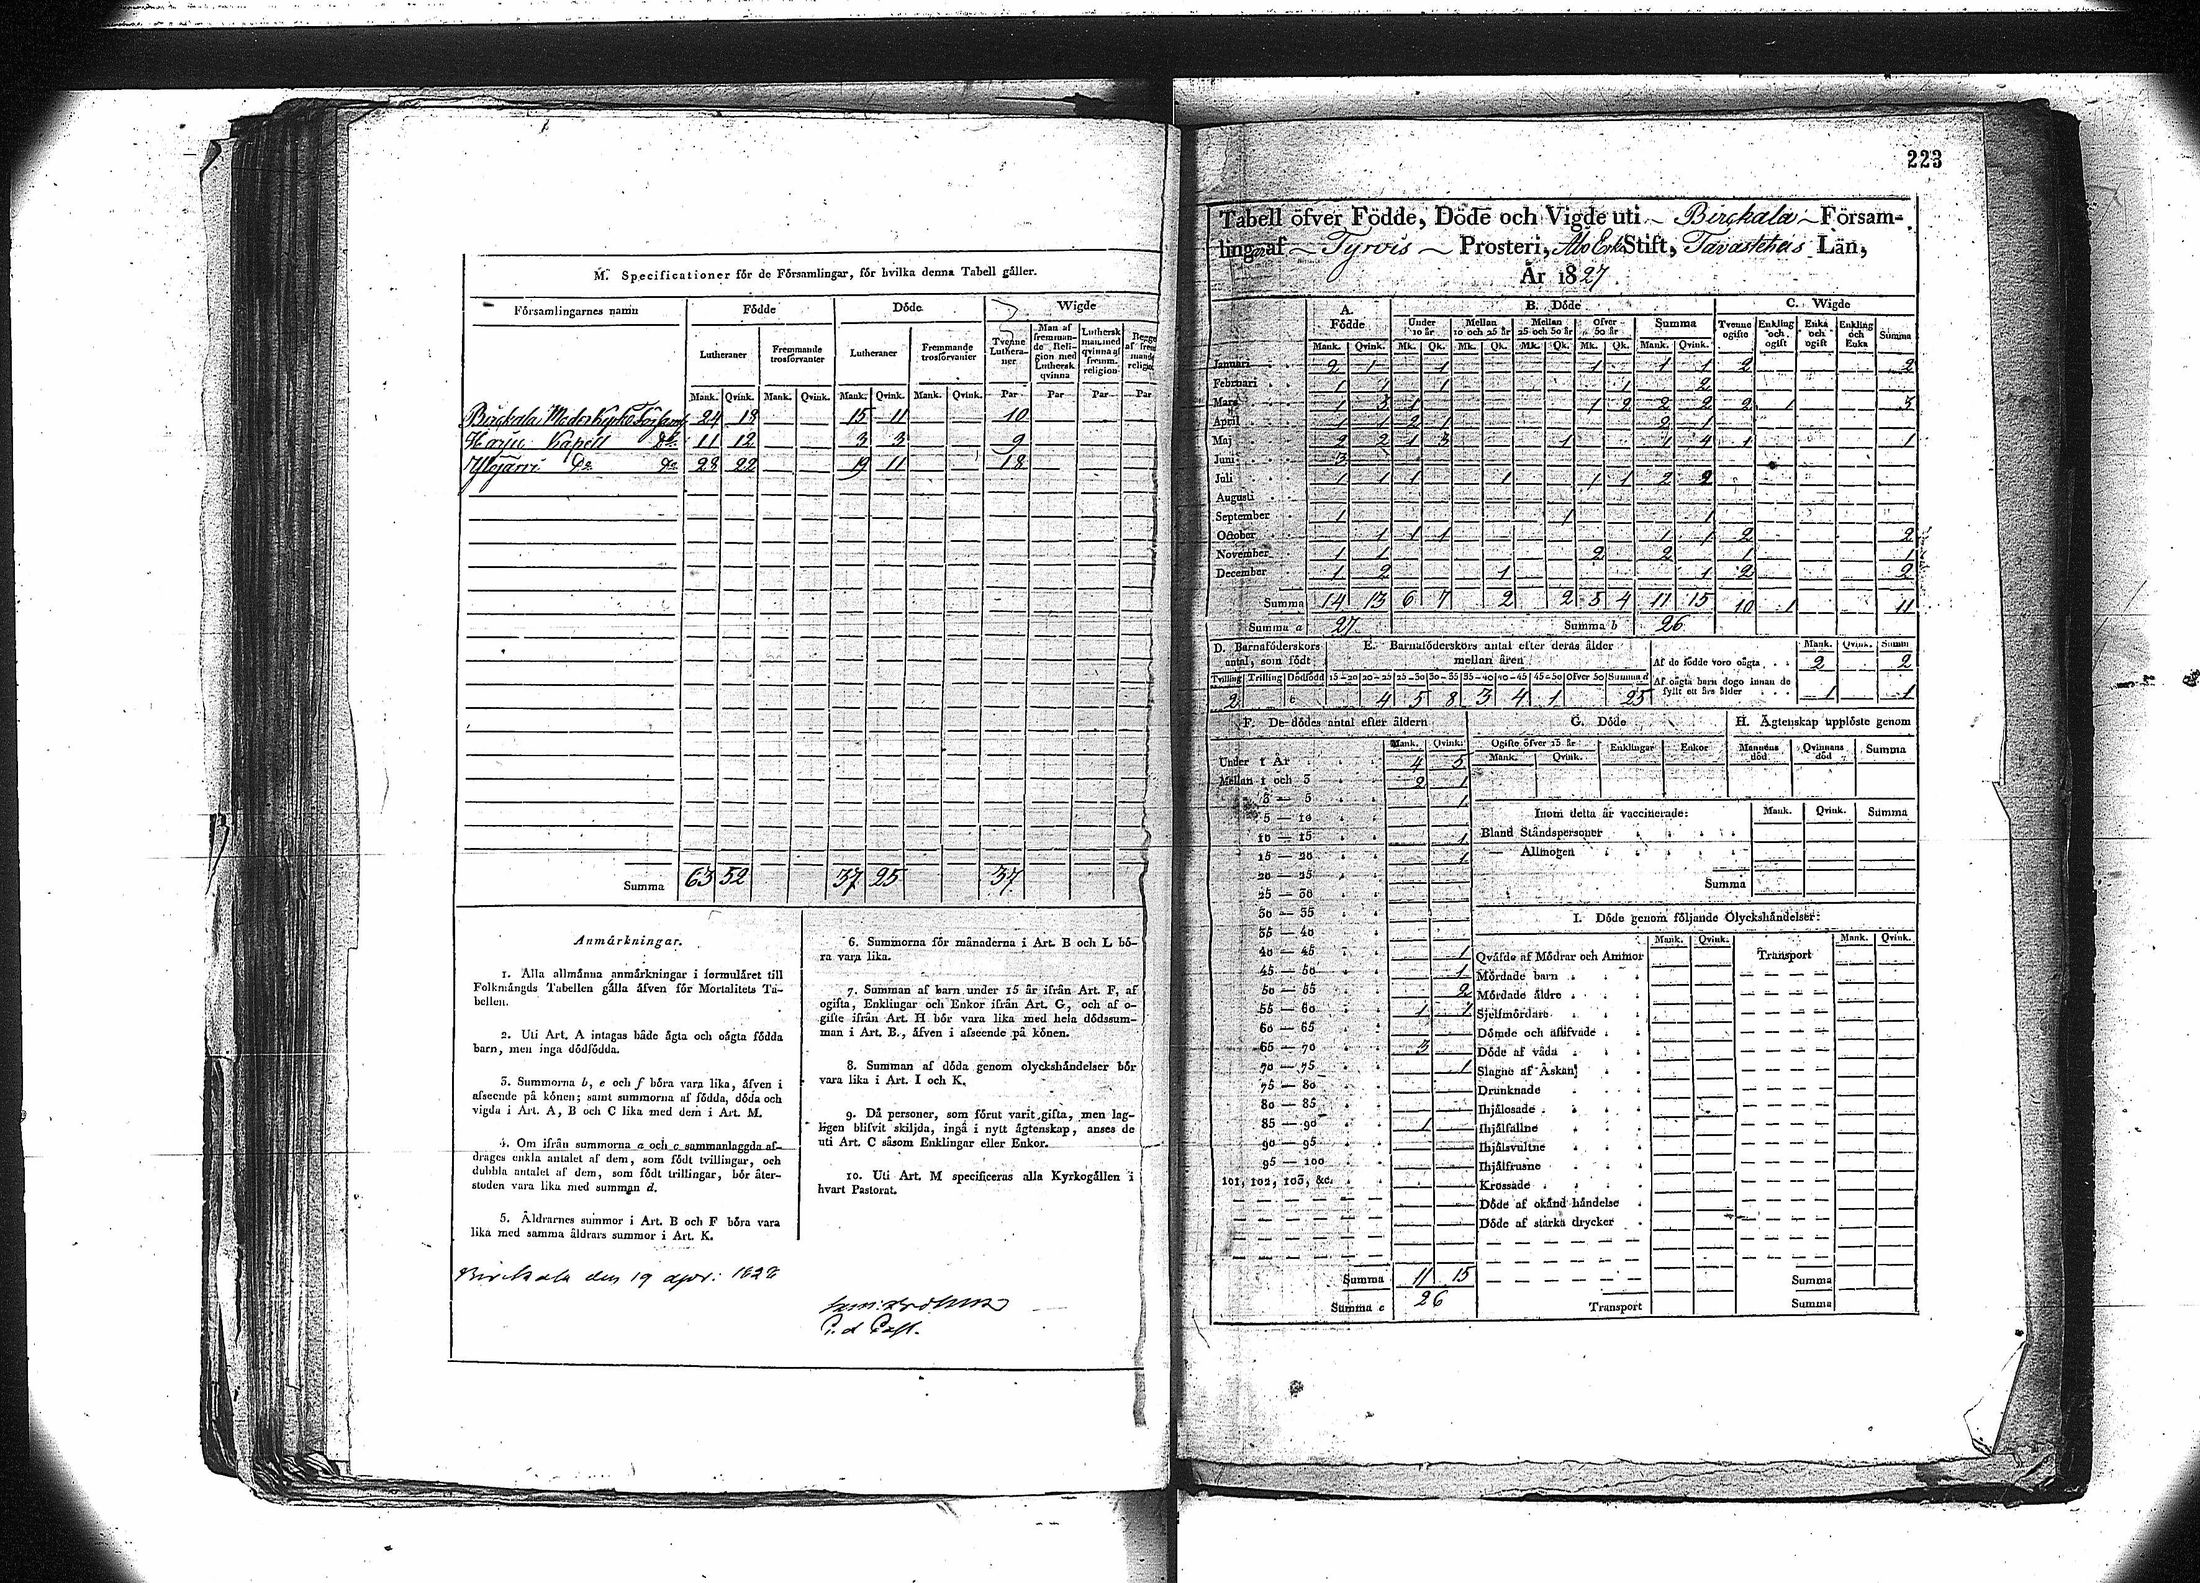 M. Specificationer för de Församlingar, för hvilka denna Tabell gäller.
Församlingarnes namn
Födde
Döde
Wigde
Lutheraner
Fremmande trosförvanter
Lutheraner
Fremmande trosförvanter
Tvenne Lutheraner
Man af fremmande Religion med Luthersk qvinna
Luthersk man med qvinna af fremm. religion
Mank. Qvink. Mank. Qvink. Mank. Qvink. Mank. Qvink. Par Par Par Par
Birckala Moderkyrko Församl 24 18 15 11 10
Harju Kapell do 11 12 3 3 9
Ylöjärvi Do Do 28 22 19 11 18
Summa 63 52 37 25 37
Anmärkningar.
1. Alla allmänna anmärkningar i formuläret till
Folkmängds Tabellen gälla äfven för Mortalitets Ta-
bellen.
2. Uti Art. A intagas både ägta och oägta födda
barn, men inga dödfödda.
3. Summorna b, e och f böra vara lika, äfven i
afseende på könen; samt summorna af födda, döda och
vigda i Art. A, B och C lika med dem i Art. M.
4. Om ifrån summorna a och c sammanlaggda af-
drages enkla antalet af dem, som födt tvillingar, och
dubbla antalet af dem, som födt trillingar, bör åter-
stoden vara lika med summan d.
5. Åldrarnes summor i Art. B och F böra vara
lika med samma åldrars summor i Art. K.
6. Summorna för månaderna i Art. B och L bö-
ra vara lika.
7. Summan af barn under 15 år ifrån Art. F, af
ogifta, Enklingar och Enkor ifrån Art. G, och af o-
gifte ifrån Art. H bör vara lika med hela dödssum-
man i Art. B., äfven i afseende på könen.
8. Summan af döda genom olyckshändelser bör
vara lika i Art. I och K.
9. Då personer, som förut varit gifta, men lag-
ligen blifvit skiljda, ingå i nytt ägtenskap, anses de
uti Art. C såsom Enklingar eller Enkor.
10. Uti Art. M specificeras alla Kyrkogällen i
hvart Pastorat.
Birckala den 19 apr: 1828
223
Tabell öfver Födde, Döde och Vigde uti Birckala Försam-
ling af Tyrvis Prosteri, Åbo Erke Stift, Tavastehus Län,
År 1827
A. Födde
B. Döde
C. Wigde
Under 10 år
Mellan 10 och 25 år
Mellan 25 och 50 år
Öfver 50 år
Summa
Tvenne ogifte
Enkling och ogift
Enka och ogift
Enkling och Enka
Summa
Mank. Qvink. Mk. Qk. Mk. Qk. Mk. Qk. Mk. Qk. Mank. Qvink.
Januari 2 1 1 1 1 1 2 2
Februari 1 1 1 1 2
Mars 1 3 1 1 2 2 2 2 1 3
April 1 1 2 1 2 1
Maj 2 2 1 3 1 1 4 1 1
Juni 3
Juli 1 1 1 1 1 1 2 2
Augusti
September 1 1 1
October 1 1 1 1 1 2 2
November 1 1 2 2 1 1
December 1 2 1 1 2 2
Summa 14 13 6 7 2 2 5 4 11 15 10 1 11
Summa a 27 Summa b 26
D. Barnaföderskors antal, som födt
E. Barnaföderskors antal efter deras ålder mellan åren
Tvilling Trilling Dödfödd 15-20 20-25 25-30 30-35 35-40 40-45 45-50 Öfver 50 Summa d
2 c 4 5 8 3 4 1 25
Mank. Qvink. Summ
Af de födde voro oägta 2 2
Af oägta barn dogo innan de fyllt ett års ålder 1 1
F. De dödes antal efter åldern
Mank. Qvink.
Under 1 År 4 5
Mellan 1 och 3 2 1
3 — 5 1
5 — 10
10 — 15 1
15 — 20 1
20 — 25
25 — 30
30 — 35
35 — 40
40 — 45 1
45 — 50 1
50 — 55 2
55 — 60 1 1
60 — 65
65 — 70 3
70 — 75 1
75 — 80
80 — 85
85 — 90 1
90 — 95
95 — 100
101, 102, 103, &c.
Summa 11 15
Summa e 26
G. Döde
Ogifte öfver 15 år
Enklingar
Enkor
Mank. Qvink.
H. Ägtenskap upplöste genom
Mannens död
Qvinnans död
Summa
Inom detta år vaccinerade:
Mank. Qvink. Summa
Bland Ståndspersoner
— Allmogen
Summa
I. Döde genom följande Olyckshändelser:
Mank. Qvink. Mank. Qvink.
Qväfde af Mödrar och Ammor Transport
Mördade barn
Mördade äldre
Sjelfmördare
Dömde och aflifvade
Döde af våda
Slagne af Åskan
Drunknade
Ihjälosade
Ihjälfallne
Ihjälsvultne
Ihjälfrusne
Krossade
Döde af okänd händelse
Döde af starka drycker
Summa
Transport Summa